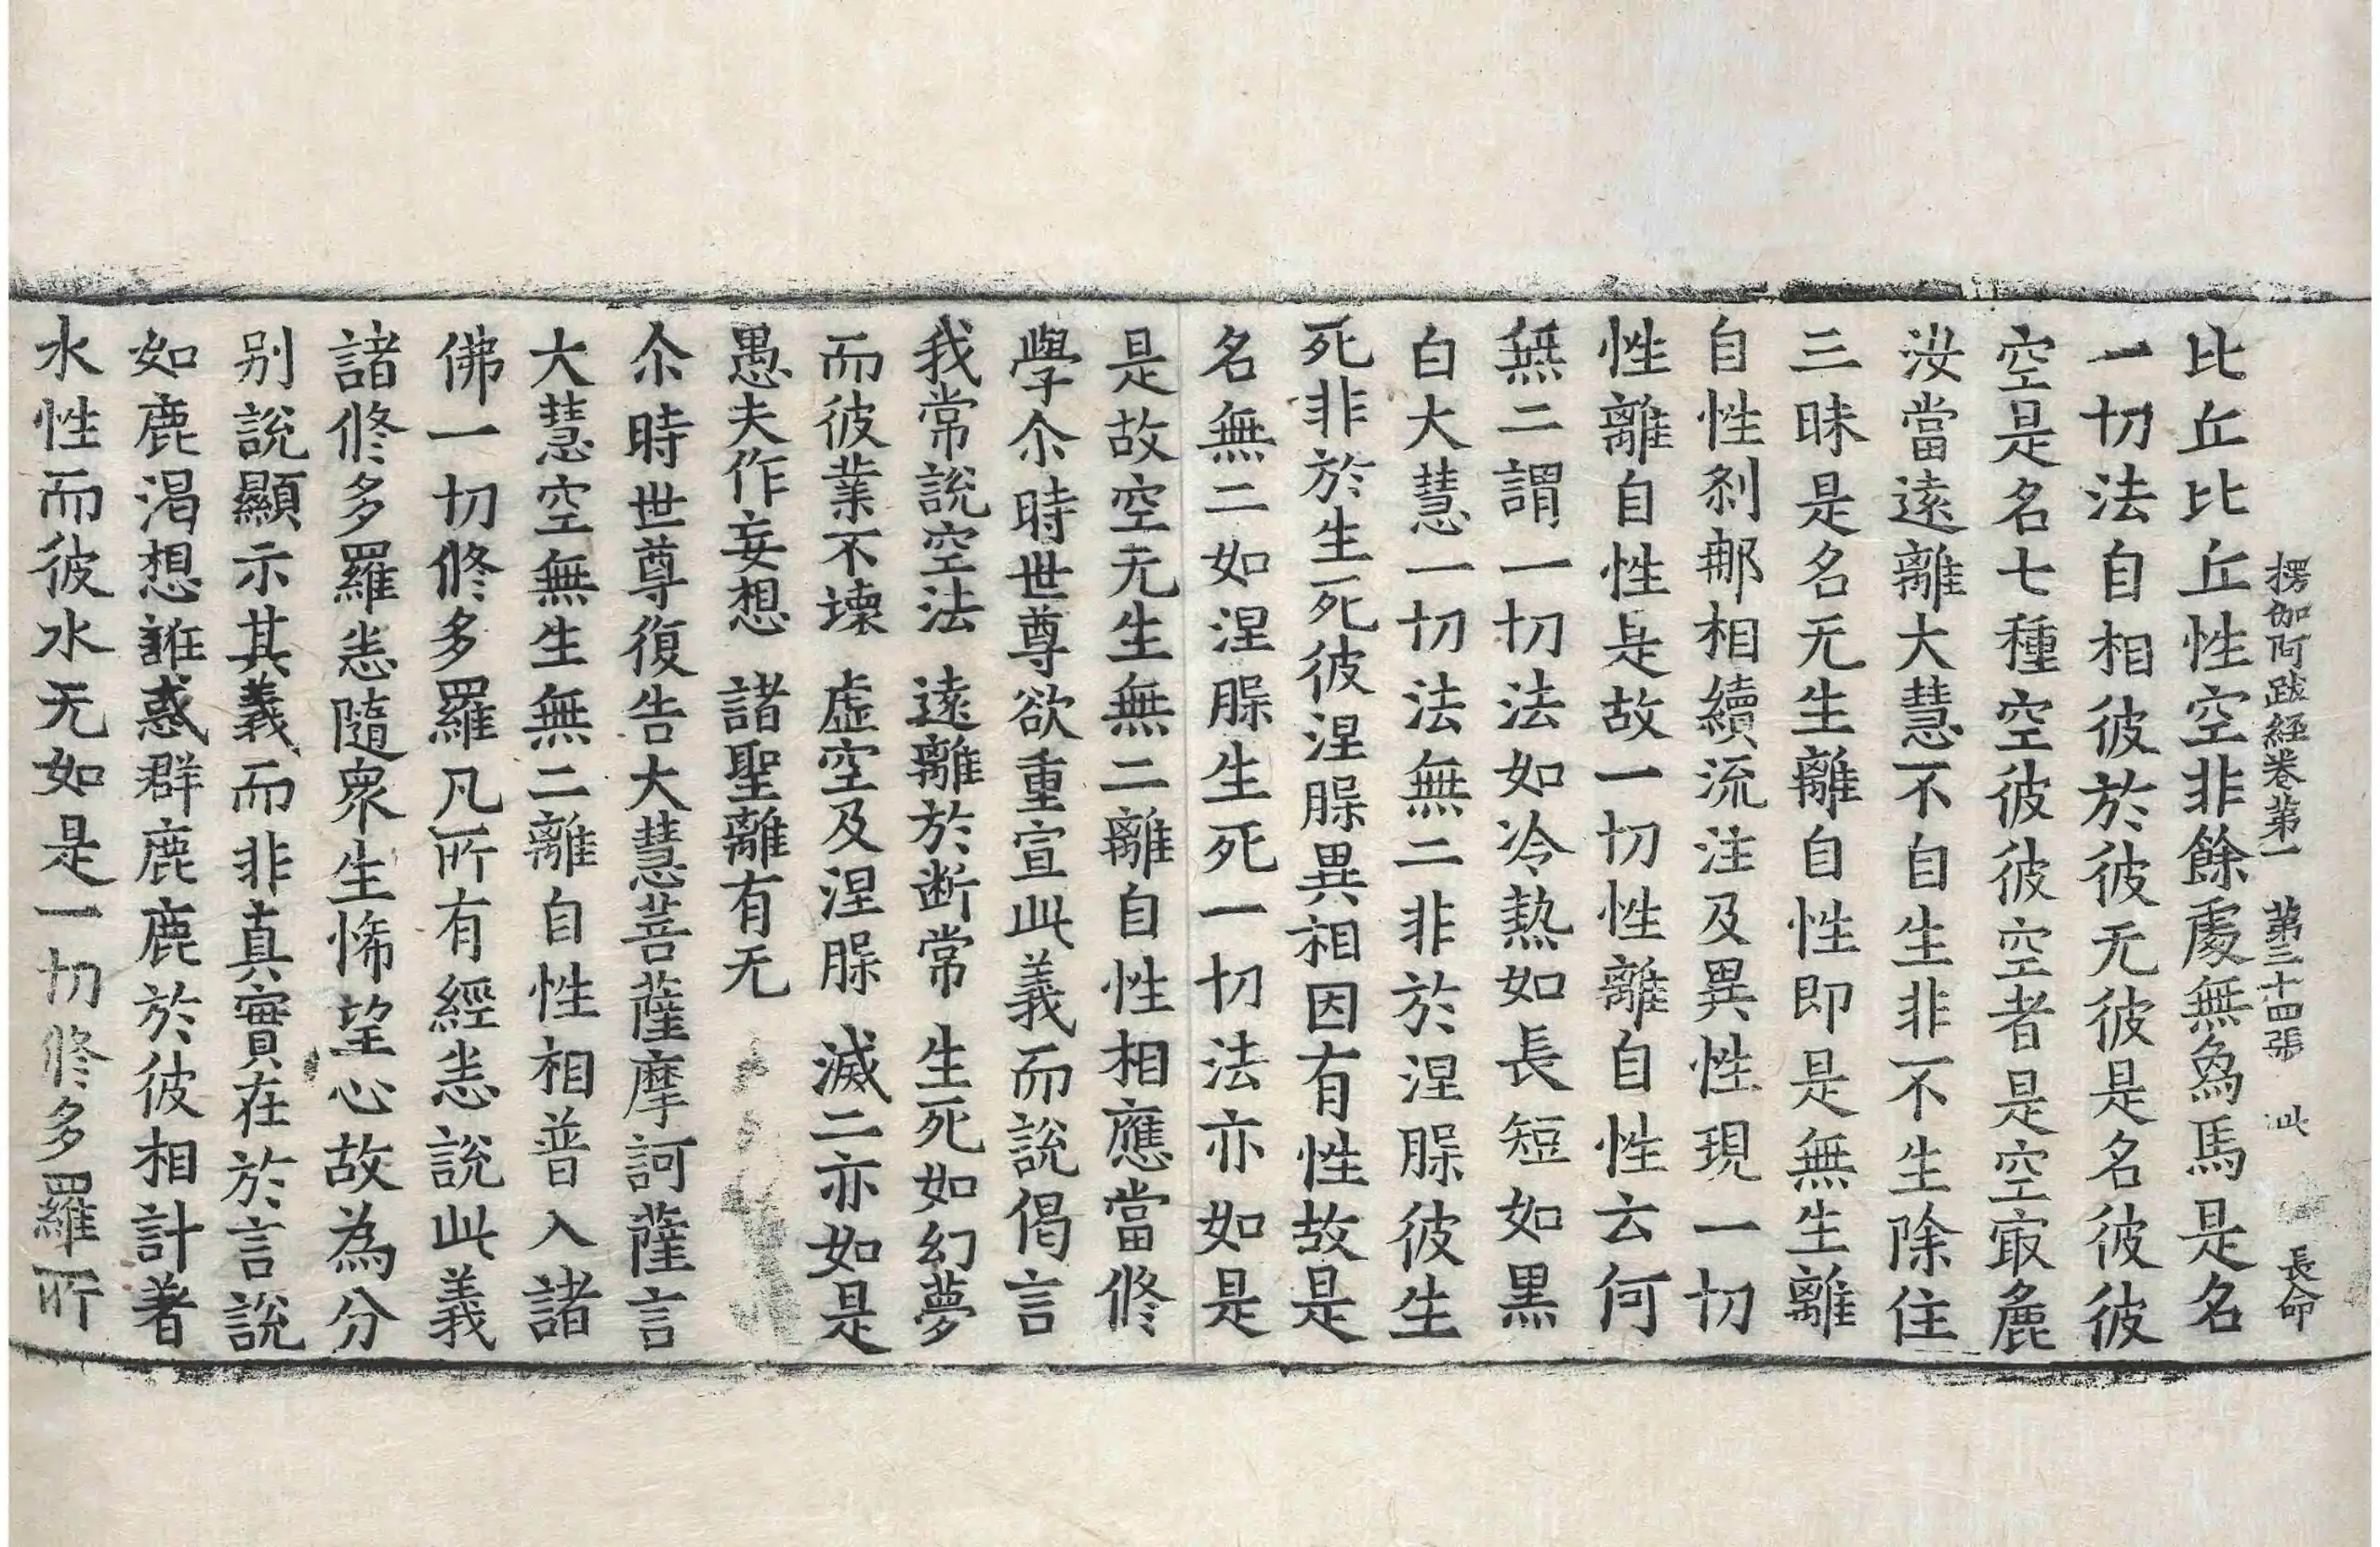 楞伽阿跋經卷第一 第三十四張 此 長命
比丘比丘性空非餘處無象馬是名
一切法自相彼於彼无彼是名彼彼
空是名七種空彼彼空者是空㝡麁
汝當遠離大慧不自生非不生除住
三昧是名无生離自性即是無生離
自性刹那相續流注及異性現一切
性離自性是故一切性離自性云何
無二謂一切法如冷熱如長短如黒
白大慧一切法無二非於涅槃彼生
死非於生死彼涅槃異相因有性故是
名無二如涅槃生死一切法亦如是
是故空无生無二離自性相應當修
學尒時世尊欲重宣此義而說偈言
我常說空法 遠離於断常 生死如幻夢
而彼業不壞 虛空及涅槃 滅二亦如是
愚夫作妄想 諸聖離有无
尒時世尊復告大慧菩薩摩訶薩言
大慧空無生無二離自性相普入諸
佛一切修多羅凡所有經悉說此義
諸修多羅悉隨衆生悕望心故為分
别說顯示其義而非真實在於言說
如鹿渴想誑惑群鹿鹿於彼相計著
水性而彼水无如是一切修多羅所